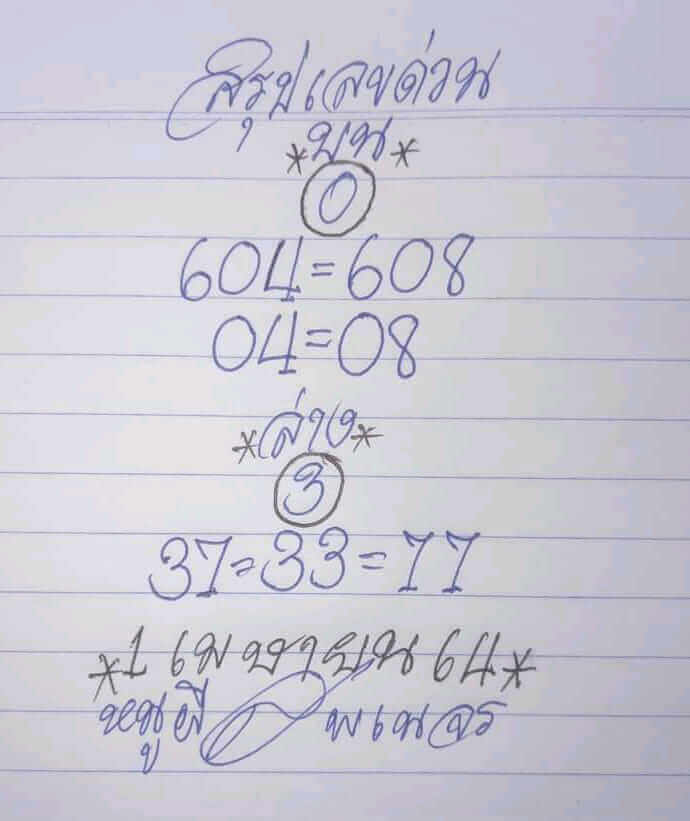 สรุปเลขด่วน
*บน*
0
604=608
04=08
*ล่าง*
3
37=33=77
*1 เมษายน 64*
หนูผี พเนจร